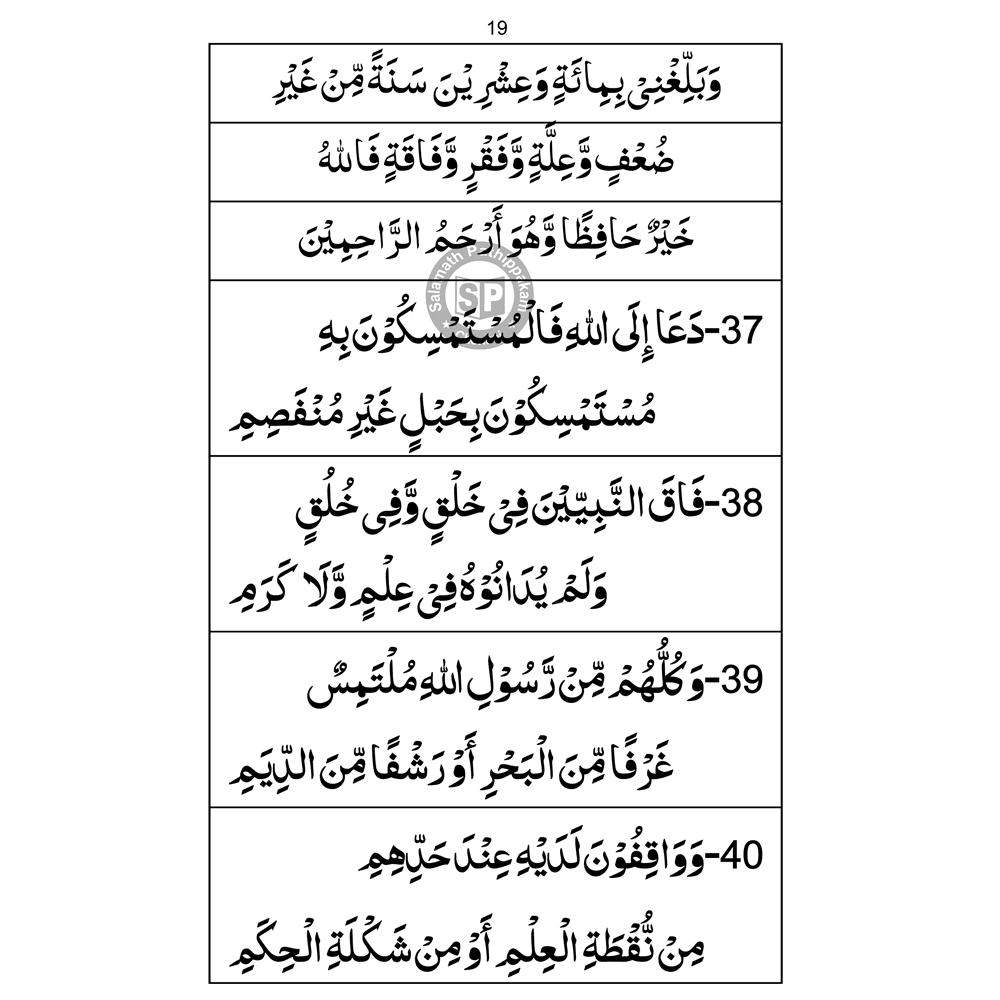 19
وَبَلِّغْنِىْ بِمِائَةٍ وَعِشْرِيْنَ سَنَةً مِّنْ غَيْرِ
ضُعْفٍ وَّعِلَّةٍ وَّفَقْرٍ وَّفَاقَةٍ فَاللهُ
خَيْرٌ حَافِظًا وَّهُوَ أَرْحَمُ الرَّاحِمِيْنَ
Salamath Pathippakam
SP
37-دَعَا إِلَى اللهِ فَالْمُسْتَمْسِكُوْنَ بِهِ
مُسْتَمْسِكُوْنَ بِحَبْلٍ غَيْرِ مُنْفَصِمِ
38-فَاقَ النَّبِيّيْنَ فِىْ خَلْقٍ وَّفِى خُلُقٍ
وَلَمْ يُدَانُوْهُ فِىْ عِلْمٍ وَّلَا كَرَمِ
39-وَكُلُّهُمْ مِّنْ رَّسُوْلِ اللهِ مُلْتَمِسٌ
غَرْفًا مِّنَ الْبَحْرِ أَوْ رَشْفًا مِّنَ الدِّيَمِ
40-وَوَاقِفُوْنَ لَدَيْهِ عِنْدَ حَدِّهِمِ
مِنْ نُّقْطَةِ الْعِلْمِ أَوْ مِنْ شَكْلَةِ الْحِكَمِ